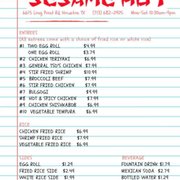 SESAME HUT
6615 Long Point Rd, Houston TX (713) 682-2905 Mon-Sat 10:30am-9pm
ENTREES
(All entrees come with a choice of fried rice or white rice)
#1 TWO EGG ROLL $4.99
ONE EGG ROLL $3.99
#2 CHICKEN TERIYAKI $6.99
#3 GENERAL TSO'S CHICKEN $7.99
#4 STIR FRIED SHRIMP $10.99
#5 BROCCOLI BEEF $9.99
#6 STIR FRIED CHICKEN $7.99
#7 BULGOGI $9.99
#8 HOT & SPICY CHICKEN $7.99
#9 CHICKEN SHISHKABOB $6.99
#10 VEGETABLE TEMPURA $6.99
RICE
CHICKEN FRIED RICE $6.99
SHRIMP FRIED RICE $7.99
VEGETABLE FRIED RICE $6.99
SIDES
EGG ROLL $1.29
FRIED RICE SIDE $2.99
WHITE RICE SIDE
BEVERAGE
FOUNTAIN DRINK $1.79
MEXICAN SODA $2.79
BOTTLED WATER